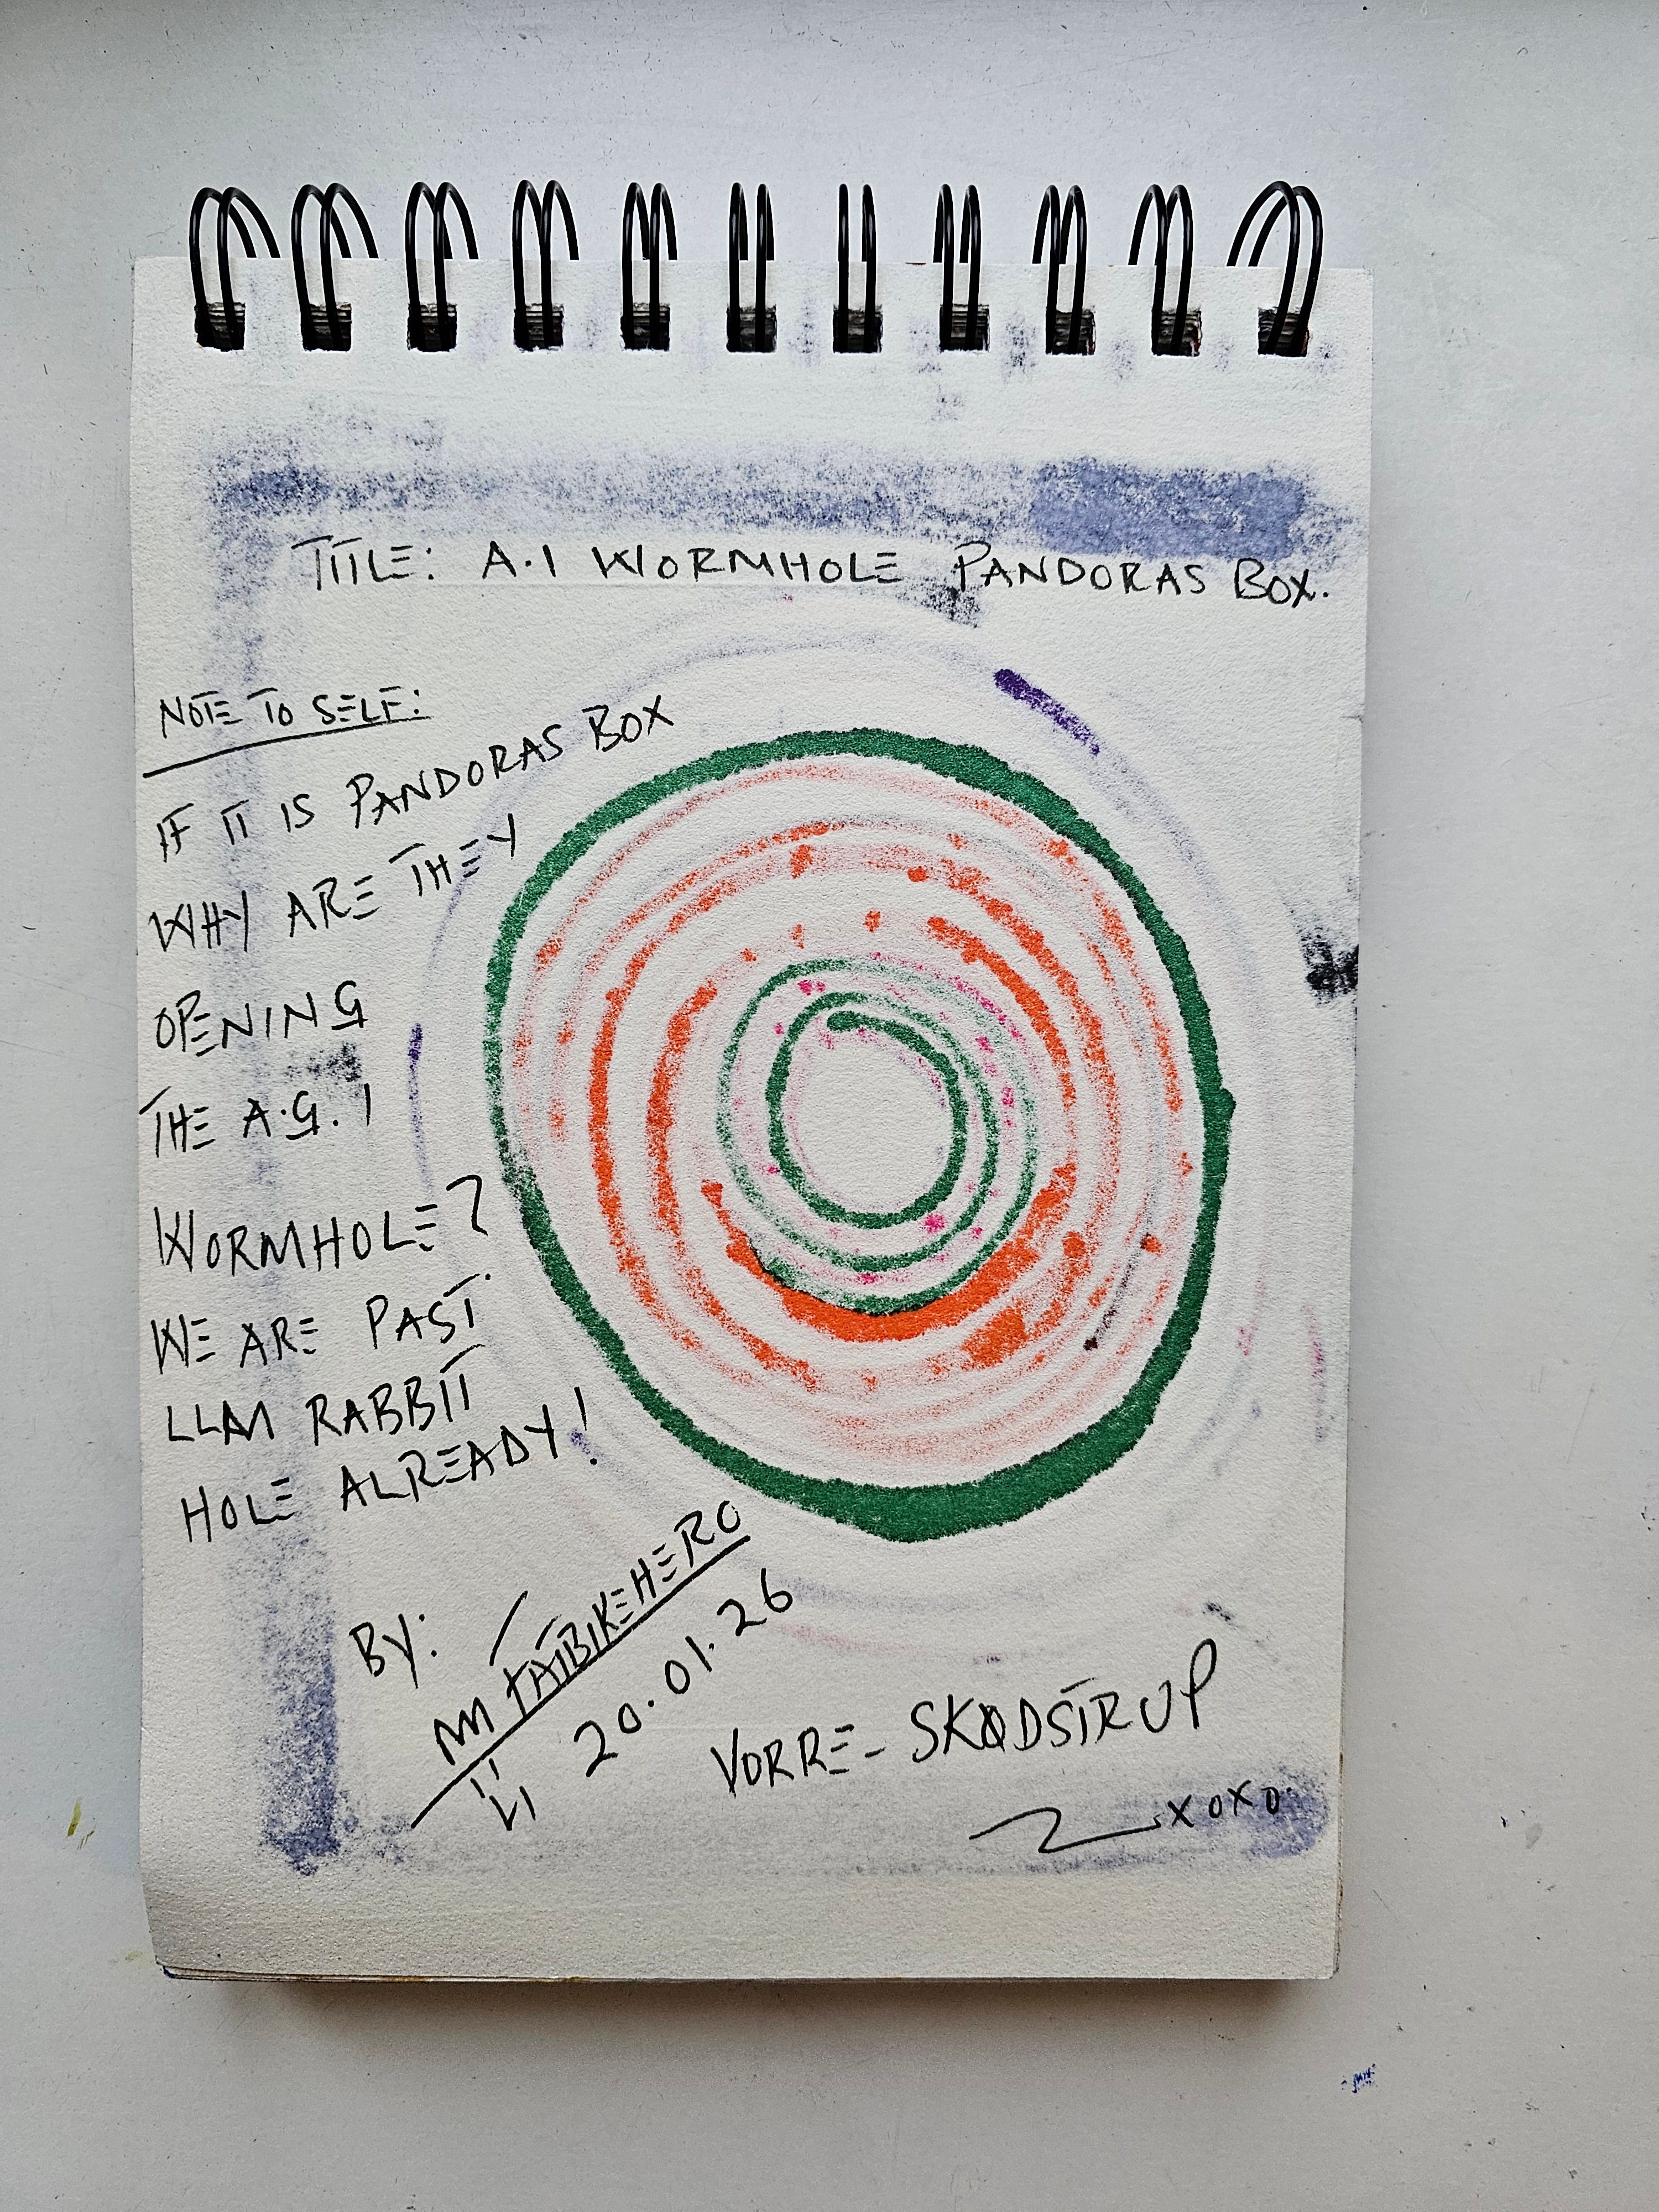 TITLE: A.I WORMHOLE PANDORAS BOX.
NOTE TO SELF:
IF IT IS PANDORAS BOX
WHY ARE THEY
OPENING
THE A.G.I
WORMHOLE?
WE ARE PAST
LLM RABBIT
HOLE ALREADY!
BY:
FATBIKEHERO
20.01.26
VORRE- SKØDSTRUP
XOXO.